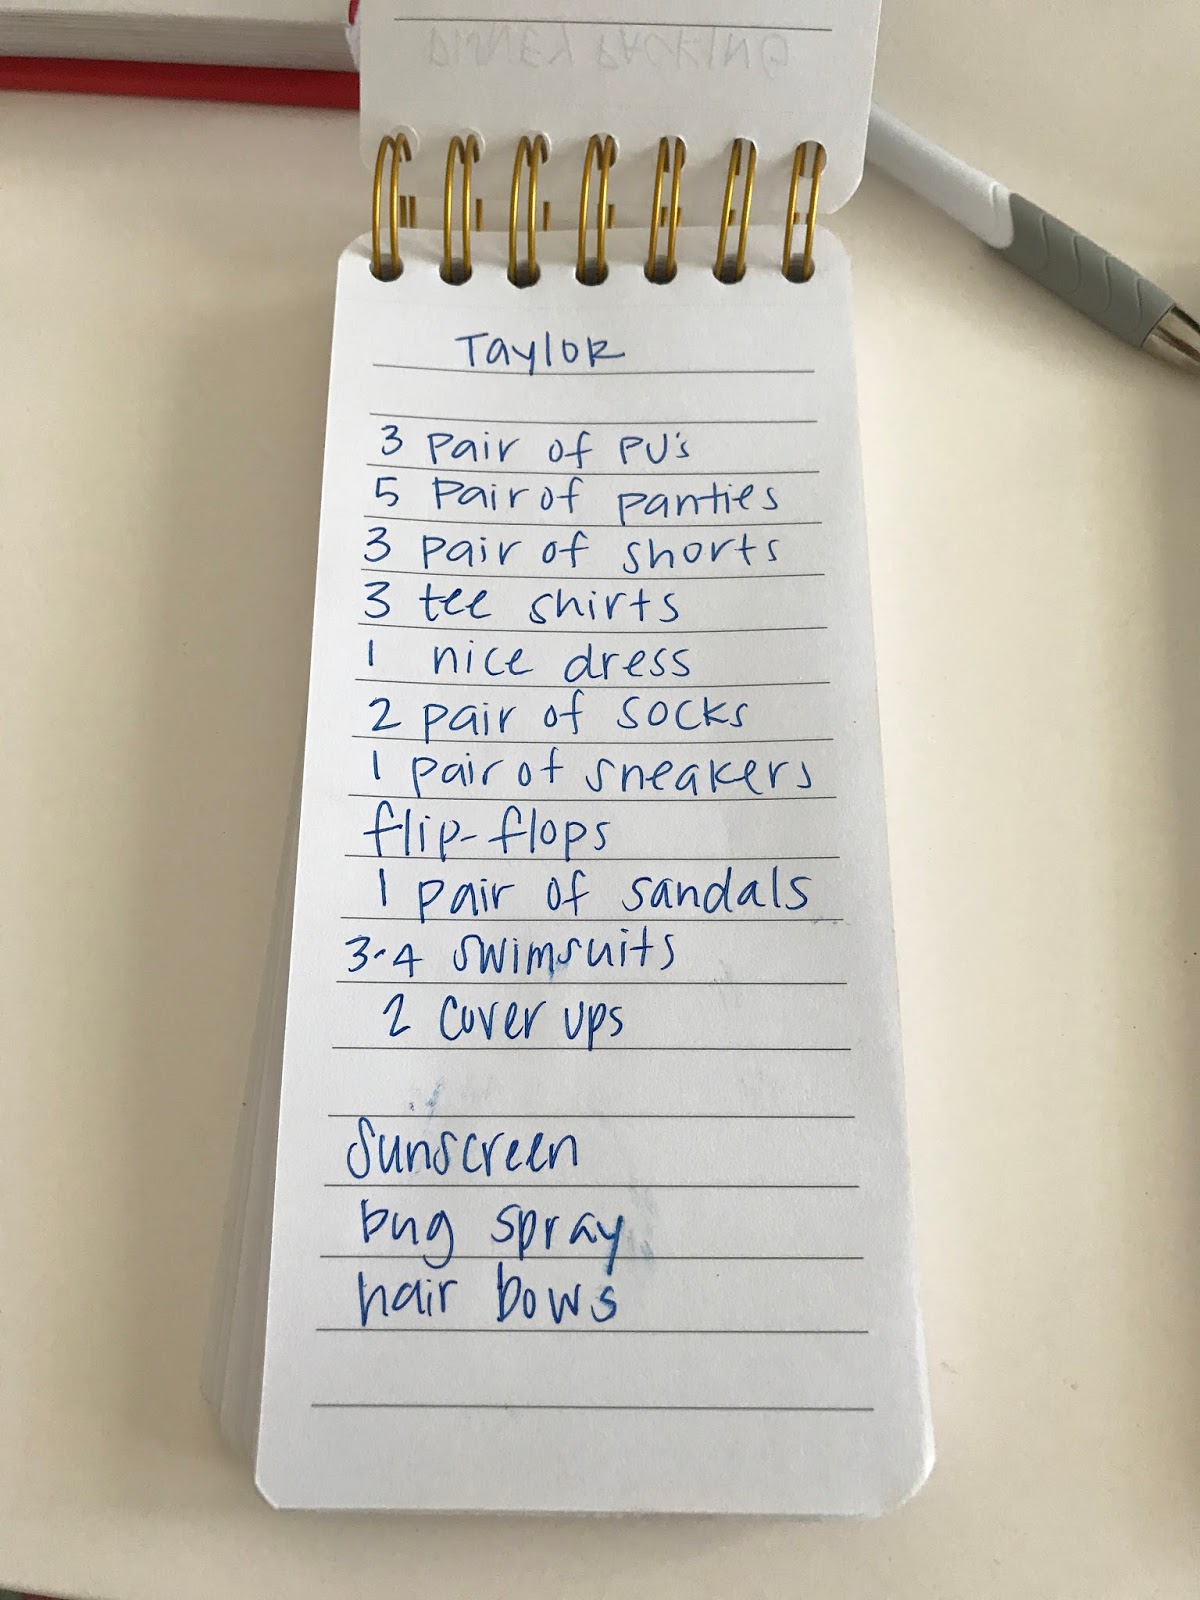 DISNEY PACKING
Taylor
3 pair of PJ's
5 pair of panties
3 pair of shorts
3 tee shirts
1 nice dress
2 pair of socks
1 pair of sneakers
flip-flops
1 pair of sandals
3-4 swimsuits
2 cover ups
sunscreen
bug spray
hair bows